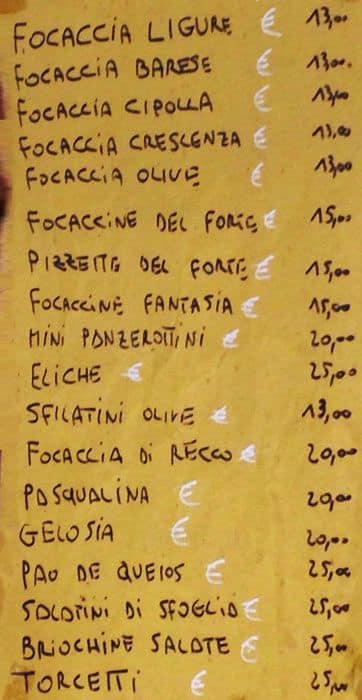 FOCACCIA LIGURE € 13,00
FOCACCIA BARESE € 13,00.
FOCACCIA CIPOLLA € 13,00
FOCACCIA CRESCENZA € 13,00
FOCACCIA OLIVE € 13,00
FOCACCINE DEL FORTE € 15,00
PIZZETTE DEL FORTE € 15,00
FOCACCINE FANTASIA € 15,00
MINI PANZEROTTINI € 20,00
ELICHE € 25,00
SFILATINI OLIVE € 13,00
FOCACCIA DI RECCO € 20,00
PASQUALINA € 20,00
GELOSIA € 20,00
PAO DE QUEIOS € 25,00
SALATINI DI SFOGLIA € 25,00
BRIOCHINE SALATE € 25,00
TORCETTI € 25,00